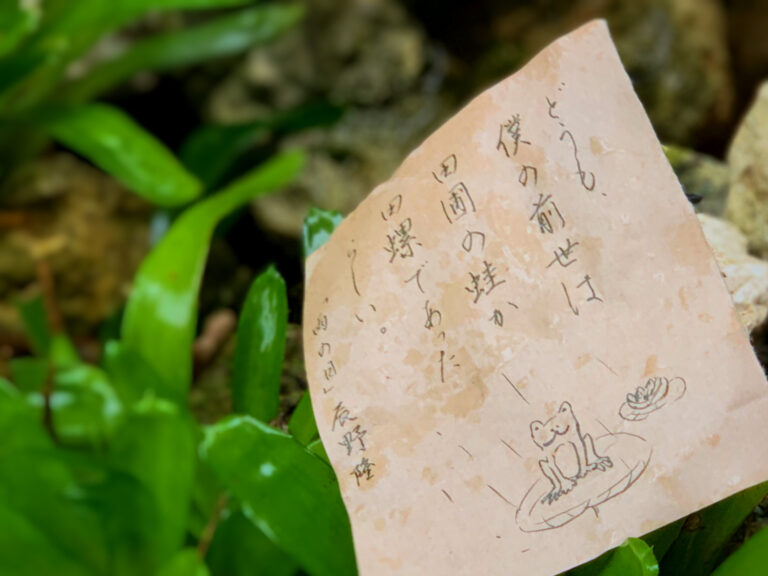 どうも、
僕の前世は
田圃の蛙か
田螺であった
らしい。
「雨の日」辰野隆